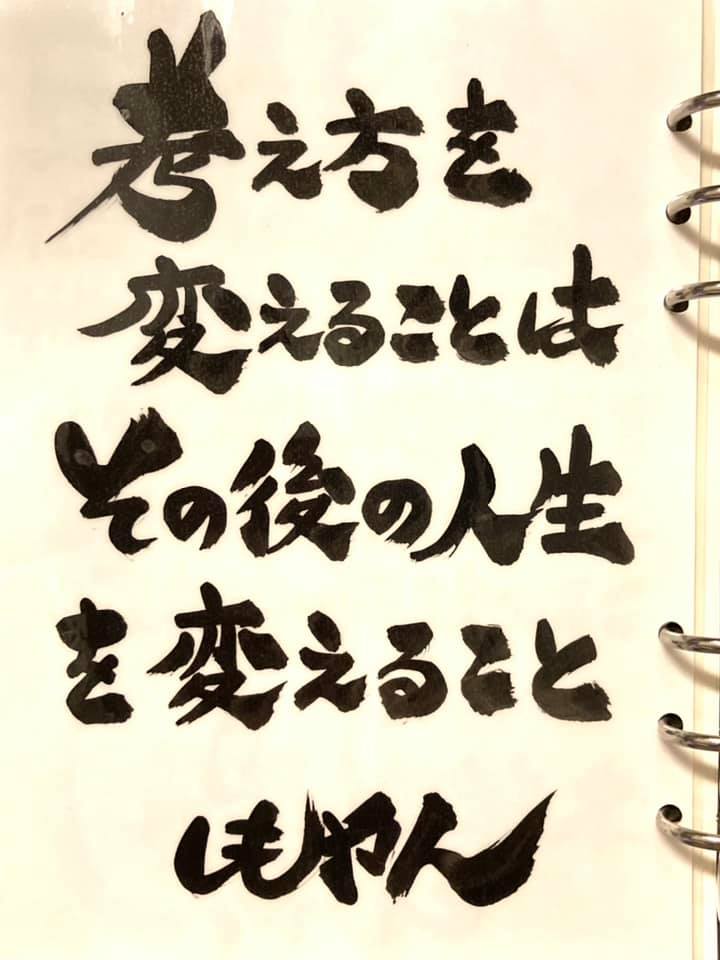 考え方を
変えることは
その後の人生
を変えること
しもやん